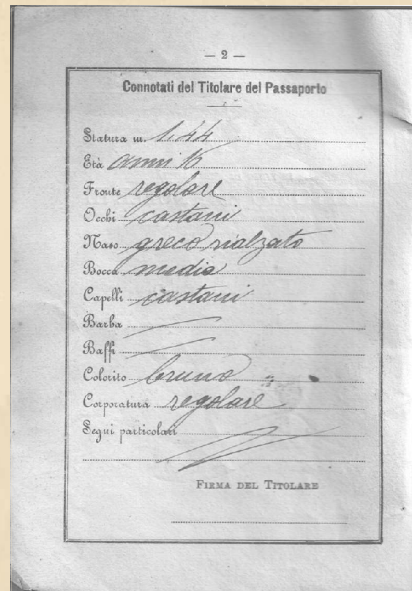 — 2 —
Connotati del Titolare del Passaporto
Statura m. 1,44
Età anni 16
Fronte regolare
Occhi castani
Naso greco rialzato
Bocca media
Capelli castani
Barba
Baffi
Colorito bruno
Corporatura regolare
Segni particolari
FIRMA DEL TITOLARE